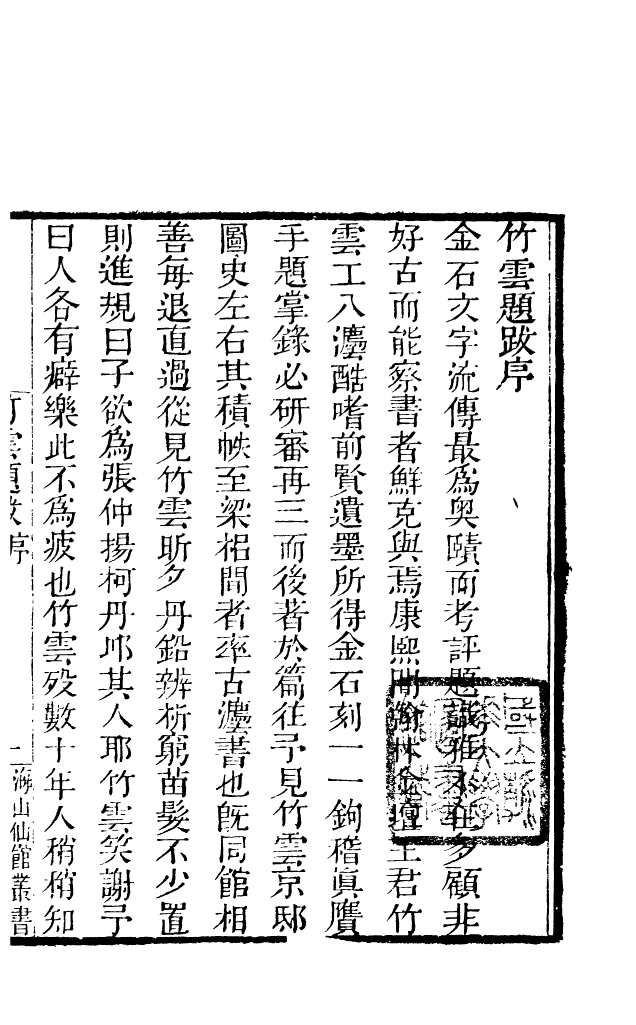 竹雲題跋序
金石文字流傳最爲奥賾而考評題識雅亦在多顧非
好古而能察書者鮮克與焉康熙間翰林金壇王君竹
雲工八灋酷嗜前賢遺墨所得金石刻一一鉤稽眞贗
手題掌錄必研審再三而後著於篇往予見竹雲京邸
圖史左右其積帙至梁梠間者率古灋書也旣同館相
善每退直過從見竹雲昕夕丹鉛辨析窮苗髮不少置
則進規曰子欲爲張仲揚柯丹邱其人耶竹雲笑謝予
曰人各有癖樂此不爲疲也竹雲歿數十年人稍稍知
竹雲題跋序
一
海山仙館叢書